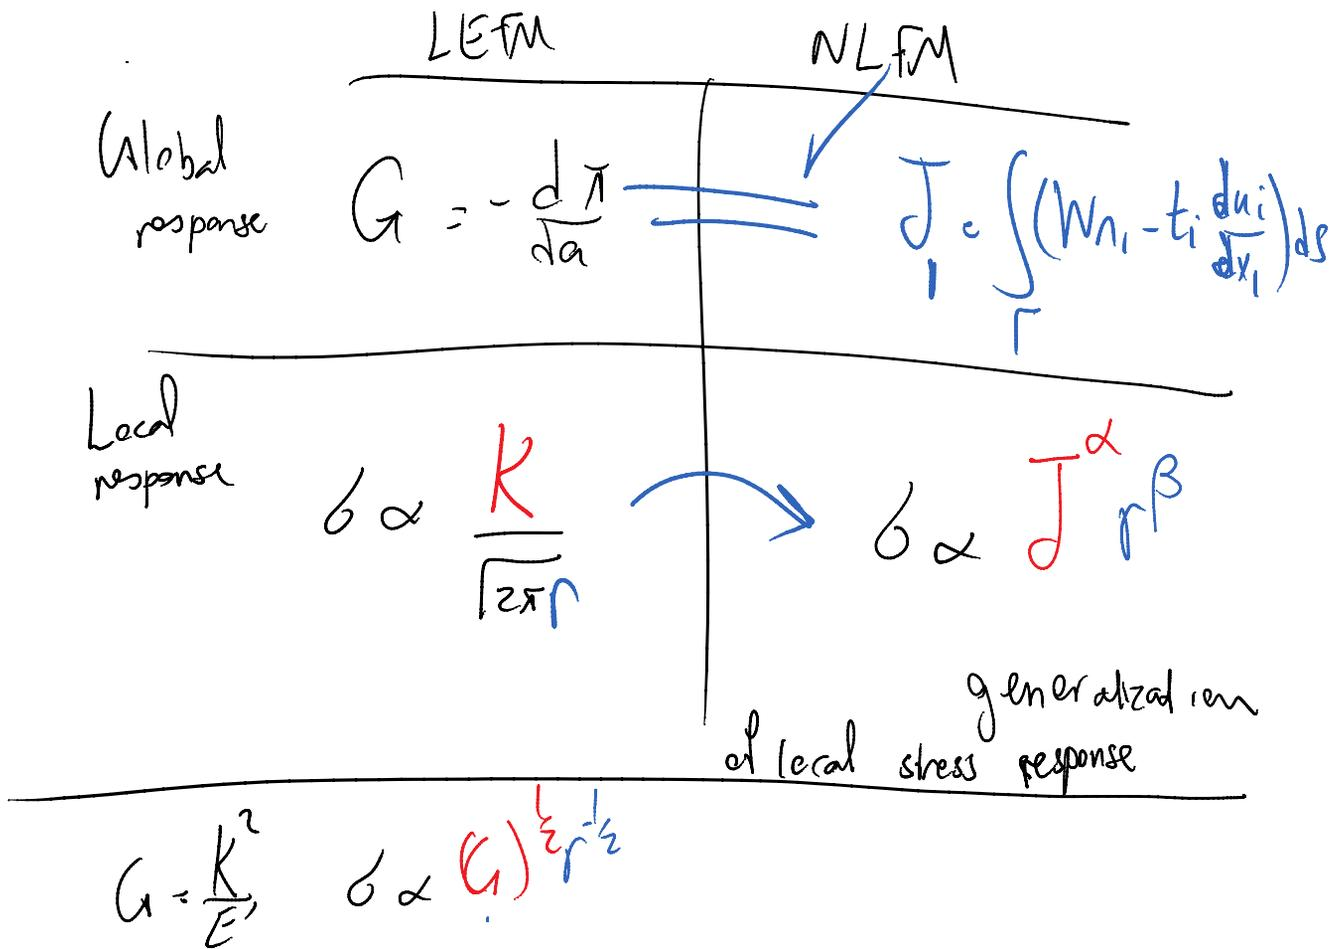 LEFM NLFM
Global
response
G = - dπ/da
J₁ = ∫_Γ (Wn₁ - tᵢ duᵢ/dx₁) ds
Local
response
σ ∝ K/√(2πr)
σ ∝ J^α r^β
generalization
of local stress response
G = K²/E' σ ∝ (G)^(1/2) r^(-1/2)